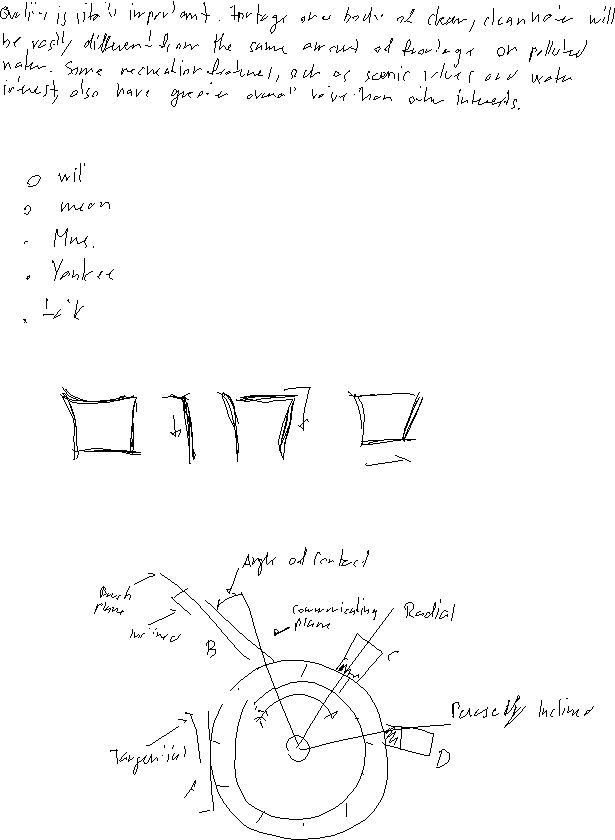 Quality is important. Footage on a body of clean, clean water will
be vastly different from the same amount of frontage on polluted
water. Some recreation features, such as scenic values and water
interest, also have greater overall value than other interests.
will
mean
Mrs.
Yankee
Angle of Contact
Brush
plane
Inclined
B
Communicating
plane
Radial
C
Inclined
D
Tangential
A